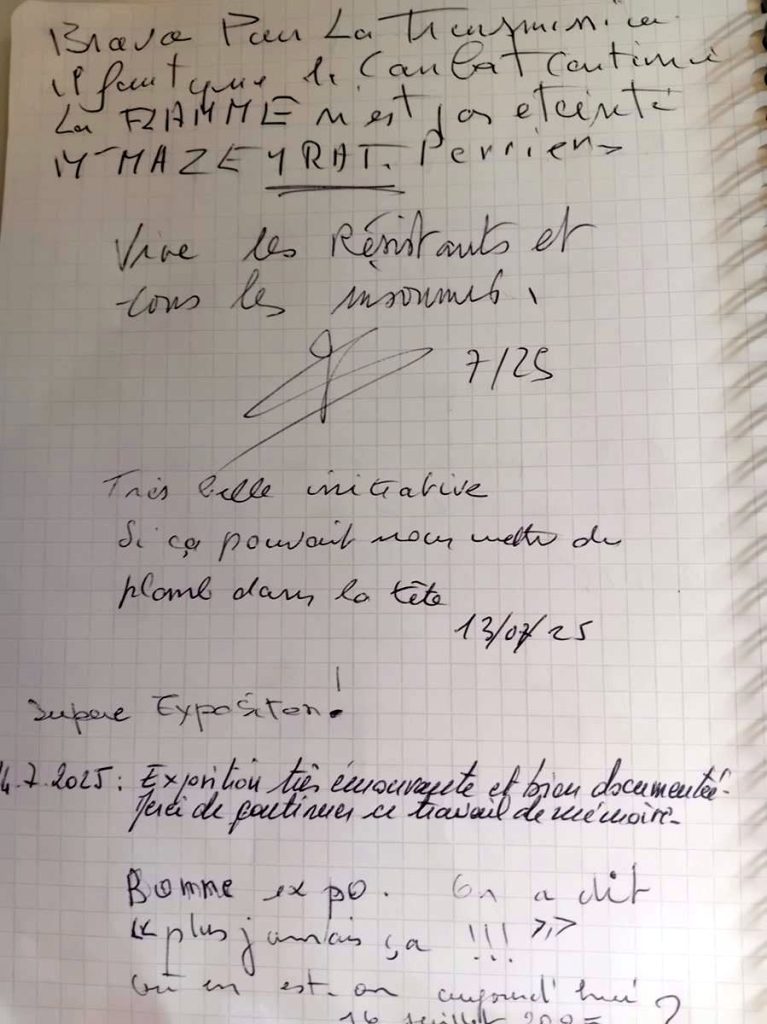 Bravo Pour La Transmission
il faut que le Combat Continue
La FLAMME n'est pas eteinte
Mr MAZEYRAT. Perriers
Vive les Résistants et
tous les insoumis.
7/25
Très belle initiative
Si ça pouvait nous mettre du
plomb dans la tête
13/07/25
Supere Exposition!
14.7.2025: Exposition très émouvante et bien documentée.
Merci de continuer ce travail de mémoire.
Bonne expo. On a dit
« plus jamais ça !!! »
Où en est-on aujourd'hui ?
16 juillet 2025